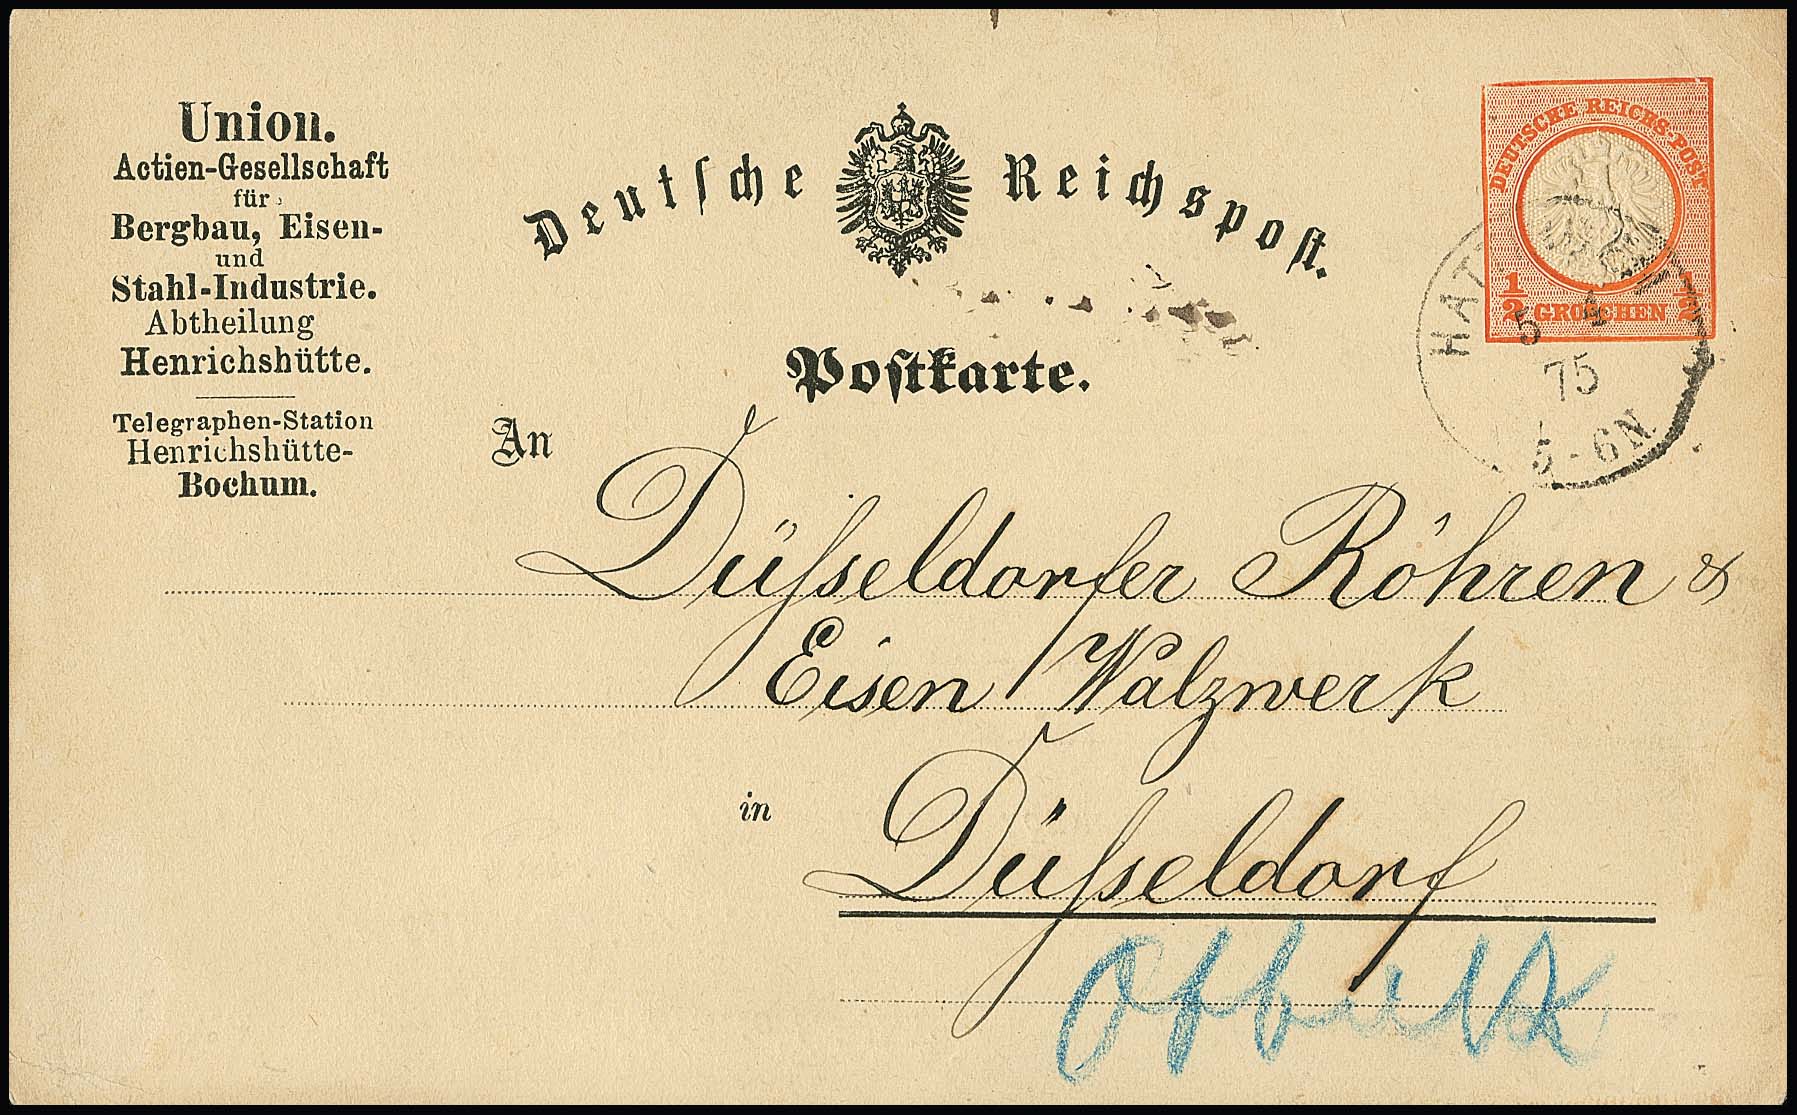 Union.
Actien-Gesellschaft
für
Bergbau, Eisen-
und
Stahl-Industrie.
Abtheilung
Henrichshütte.
Telegraphen-Station
Henrichshütte-
Bochum.
Deutsche Reichspost.
Postkarte.
DEUTSCHE REICHS-POST
1/2 GROSCHEN 1/2
5 4
75
5-6N
An
Düsseldorfer Röhren &
Eisen Walzwerk
in
Düsseldorf